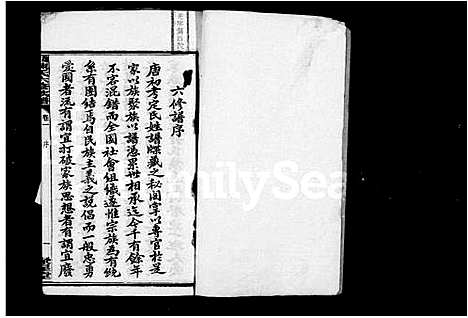 六修譜序
唐初考定氏姓譜牒藏之秘閣掌以專官於是
家以族聚族以譜憑累世相承迄今千有餘年
不容混錯而全國社會組織遂惟宗族為有統
系有團結焉自民族主義之說倡而一般忠勇
愛國者流有謂宜打破家族思想者有謂宜廢
卷一
序
一
FamilySea